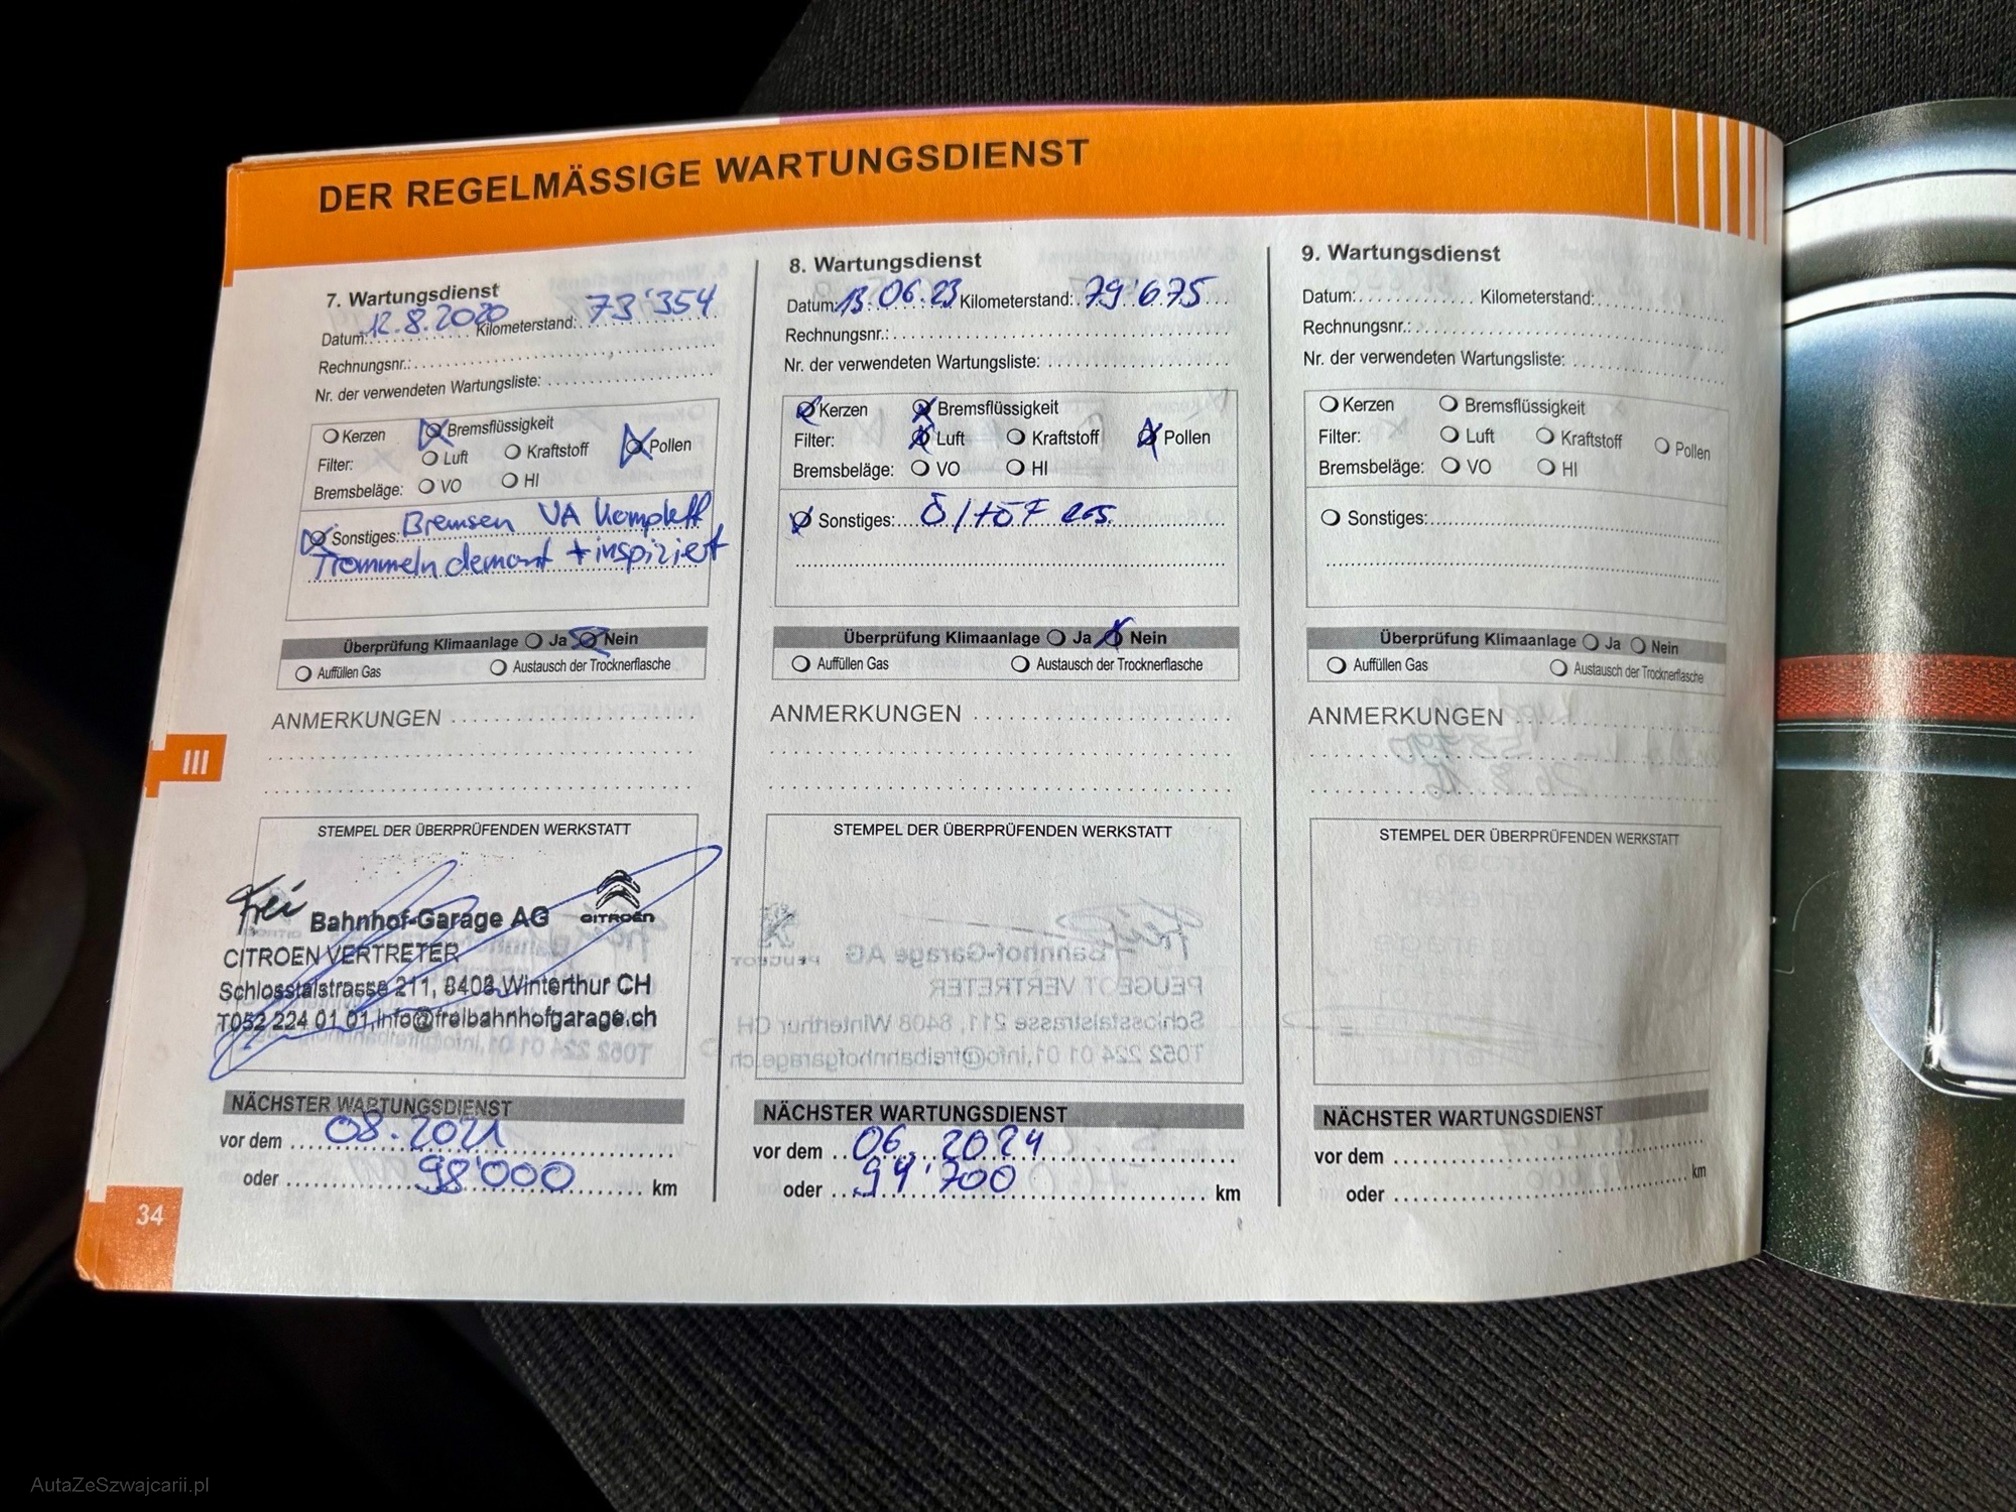 DER REGELMÄSSIGE WARTUNGSDIENST
7. Wartungsdienst
Datum: 12.8.2020 Kilometerstand: 73'354
Rechnungsnr.:
Nr. der verwendeten Wartungsliste:
Kerzen Bremsflüssigkeit
Filter: Luft Kraftstoff Pollen
Bremsbeläge: VO HI
Sonstiges: Bremsen VA komplett
Trommeln demont + inspiziert
Überprüfung Klimaanlage Ja Nein
Auffüllen Gas Austausch der Trocknerflasche
ANMERKUNGEN
STEMPEL DER ÜBERPRÜFENDEN WERKSTATT
Frei Bahnhof-Garage AG CITROËN
CITROEN VERTRETER
Schlosstalstrasse 211, 8408 Winterthur CH
T052 224 01 01,info@freibahnhofgarage.ch
NÄCHSTER WARTUNGSDIENST
vor dem 08.2021
oder 98'000 km
8. Wartungsdienst
Datum: 13.06.23 Kilometerstand: 79'675
Rechnungsnr.:
Nr. der verwendeten Wartungsliste:
Kerzen Bremsflüssigkeit
Filter: Luft Kraftstoff Pollen
Bremsbeläge: VO HI
Sonstiges: Öl+ÖF ers.
Überprüfung Klimaanlage Ja Nein
Auffüllen Gas Austausch der Trocknerflasche
ANMERKUNGEN
STEMPEL DER ÜBERPRÜFENDEN WERKSTATT
NÄCHSTER WARTUNGSDIENST
vor dem 06.2024
oder 94'700 km
9. Wartungsdienst
Datum: Kilometerstand:
Rechnungsnr.:
Nr. der verwendeten Wartungsliste:
Kerzen Bremsflüssigkeit
Filter: Luft Kraftstoff Pollen
Bremsbeläge: VO HI
Sonstiges:
Überprüfung Klimaanlage Ja Nein
Auffüllen Gas Austausch der Trocknerflasche
ANMERKUNGEN
STEMPEL DER ÜBERPRÜFENDEN WERKSTATT
NÄCHSTER WARTUNGSDIENST
vor dem
oder km
III
34
AutaZeSzwajcarii.pl